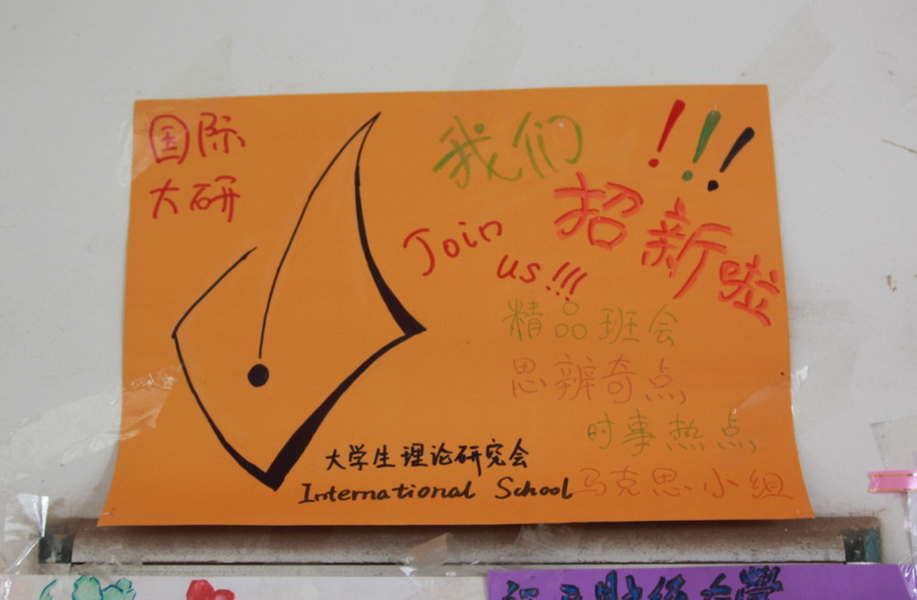 国际
大研
我们
!!!
招新啦
Join
us!!!
精品班会
思辨奇点
时事热点
马克思小组
大学生理论研究会
International School